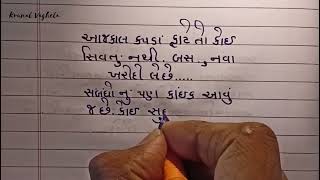 Krunal Vaghela
આજકાલ કપડાં ફાટે તો કોઈ
સિવતુ નથી. બસ, નવા
ખરીદી લે છે.....
સબંધો નું પણ કાંઇક આવું
જ છે. કોઈ સુદ